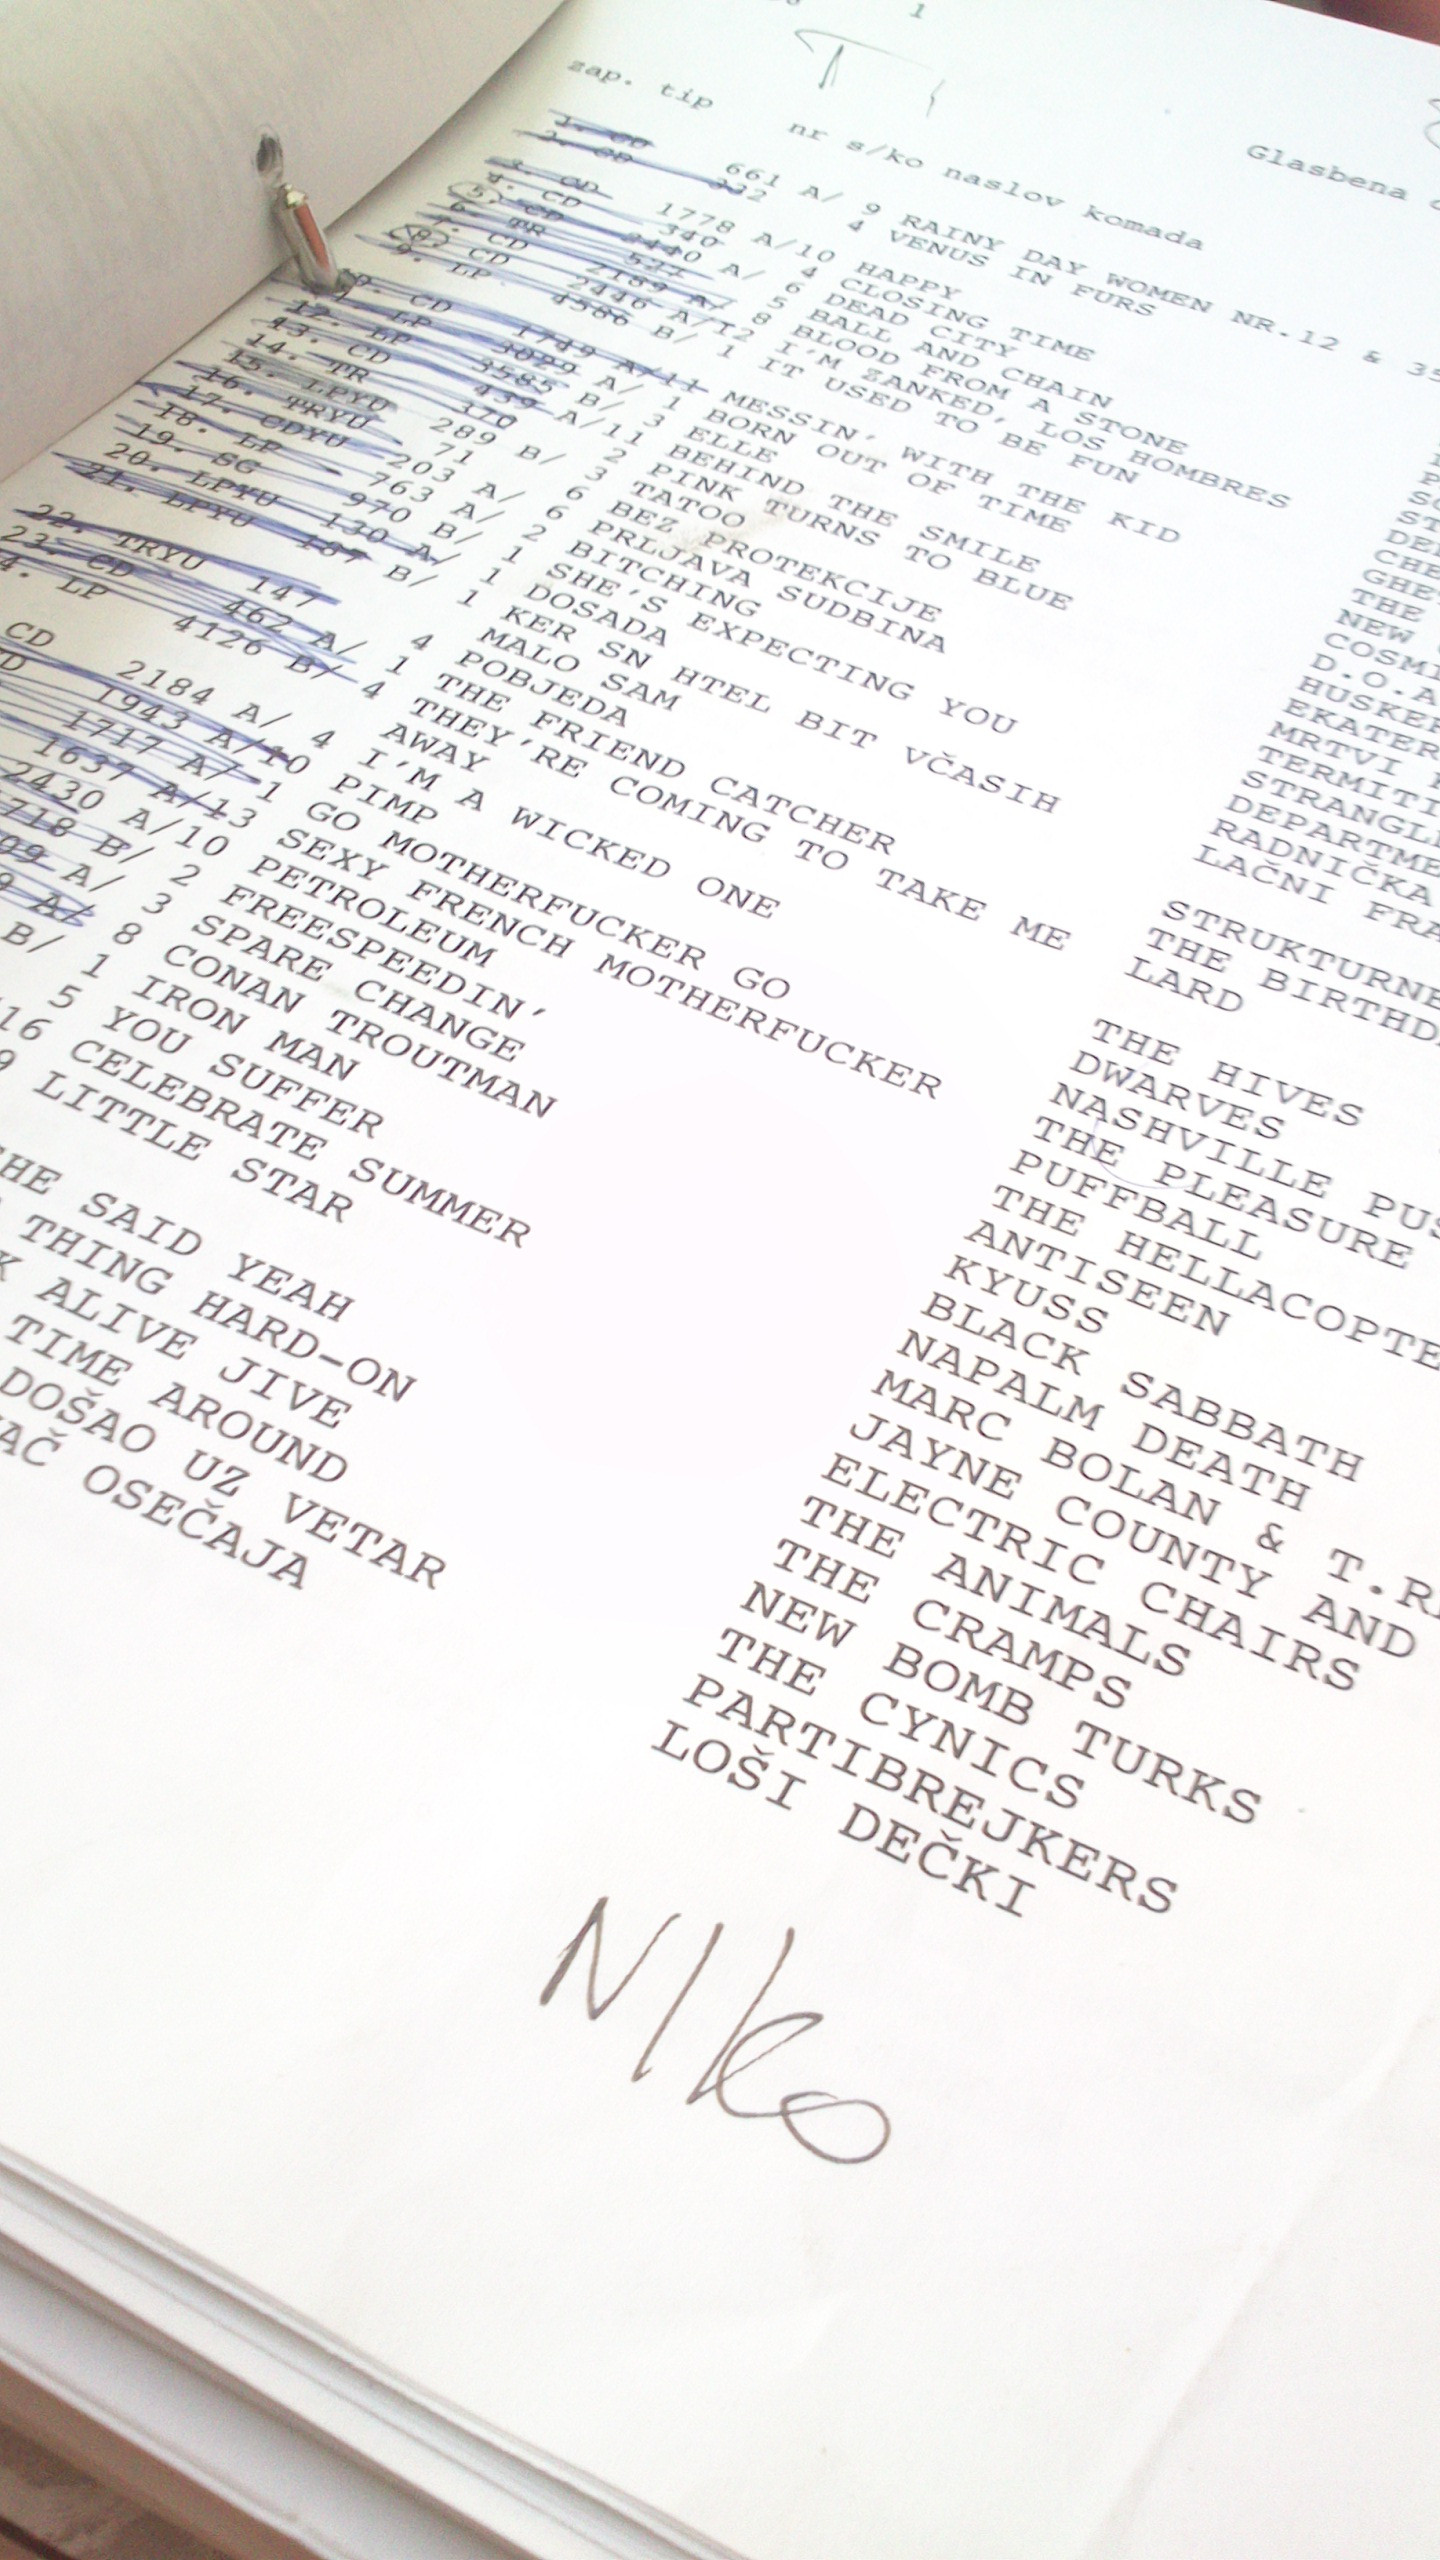 1
zap. tip nr s/ko naslov komada Glasbena
1. CD 661 A/ 9 RAINY DAY WOMEN NR.12 & 35
2. CD 332 4 VENUS IN FURS
3. CD 1778 A/10 HAPPY
4. CD 340 4 CLOSING TIME
5. CD 2440 A/ 6 DEAD CITY
6. TR 527 5 BALL AND CHAIN
7. CD 2189 A/ 8 BLOOD FROM A STONE
8. CD 2446 A/12 I'M ZANKED, LOS HOMBRES
9. LP 4586 B/ 1 IT USED TO BE FUN
CD 1749 A/11 MESSIN' WITH THE KID
LP 3029 A/ 1 BORN OUT OF TIME
12. LP 3585 B/ 3 ELLE
13. CD 439 A/11 BEHIND THE SMILE
14. TR 370 2 PINK TURNS TO BLUE
15. LPYU 289 B/ 3 TATOO
16. TRYU 71 6 BEZ PROTEKCIJE
17. CDYU 203 A/ 6 PRLJAVA SUDBINA
18. LP 763 A/ 2 BITCHING
19. SG 970 B/ 1 SHE'S EXPECTING YOU
20. LPYU 130 A/ 1 DOSADA
21. LPYU 187 B/ 1 KER SN HTEL BIT VČASIH
MALO SAM
22. TRYU 147 4 POBJEDA
23. CD 462 A/ 1 THE FRIEND CATCHER
4. LP 4126 B/ 4 THEY'RE COMING TO TAKE ME
AWAY
CD 2184 A/ 4 I'M A WICKED ONE
CD 1943 A/10 PIMP
1717 A/ 1 GO MOTHERFUCKER GO
1637 A/13 SEXY FRENCH MOTHERFUCKER
2430 A/10 PETROLEUM
718 B/ 2 FREESPEEDIN'
09 A/ 3 SPARE CHANGE
9 A/ 8 CONAN TROUTMAN
B/ 1 IRON MAN
5 YOU SUFFER
16 CELEBRATE SUMMER
9 LITTLE STAR
SHE SAID YEAH
THING HARD-ON
K ALIVE JIVE
TIME AROUND
DOŠAO UZ VETAR
AČ OSEČAJA
NEW
COSMI
D.O.A
HUSKER
EKATER
MRTVI
TERMITI
STRANGL
DEPARTME
RADNIČKA
LAČNI FRA
STRUKTURNE
THE BIRTHD
LARD
THE HIVES
DWARVES
NASHVILLE PUS
THE PLEASURE
PUFFBALL
THE HELLACOPTE
ANTISEEN
KYUSS
BLACK SABBATH
NAPALM DEATH
MARC BOLAN & T.R
JAYNE COUNTY AND
ELECTRIC CHAIRS
THE ANIMALS
THE CRAMPS
NEW BOMB TURKS
THE CYNICS
PARTIBREJKERS
LOŠI DEČKI
NIko